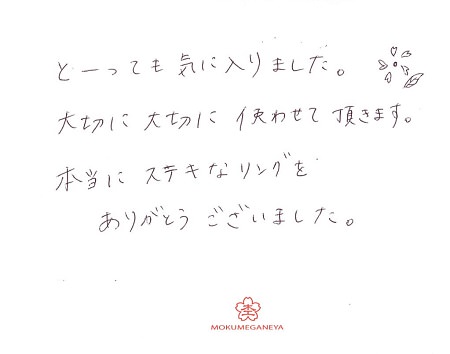 とーっても 気に入りました。
大切に 大切に 使わせて 頂きます。
本当に ステキな リングを
ありがとう ございました。
MOKUMEGANEYA